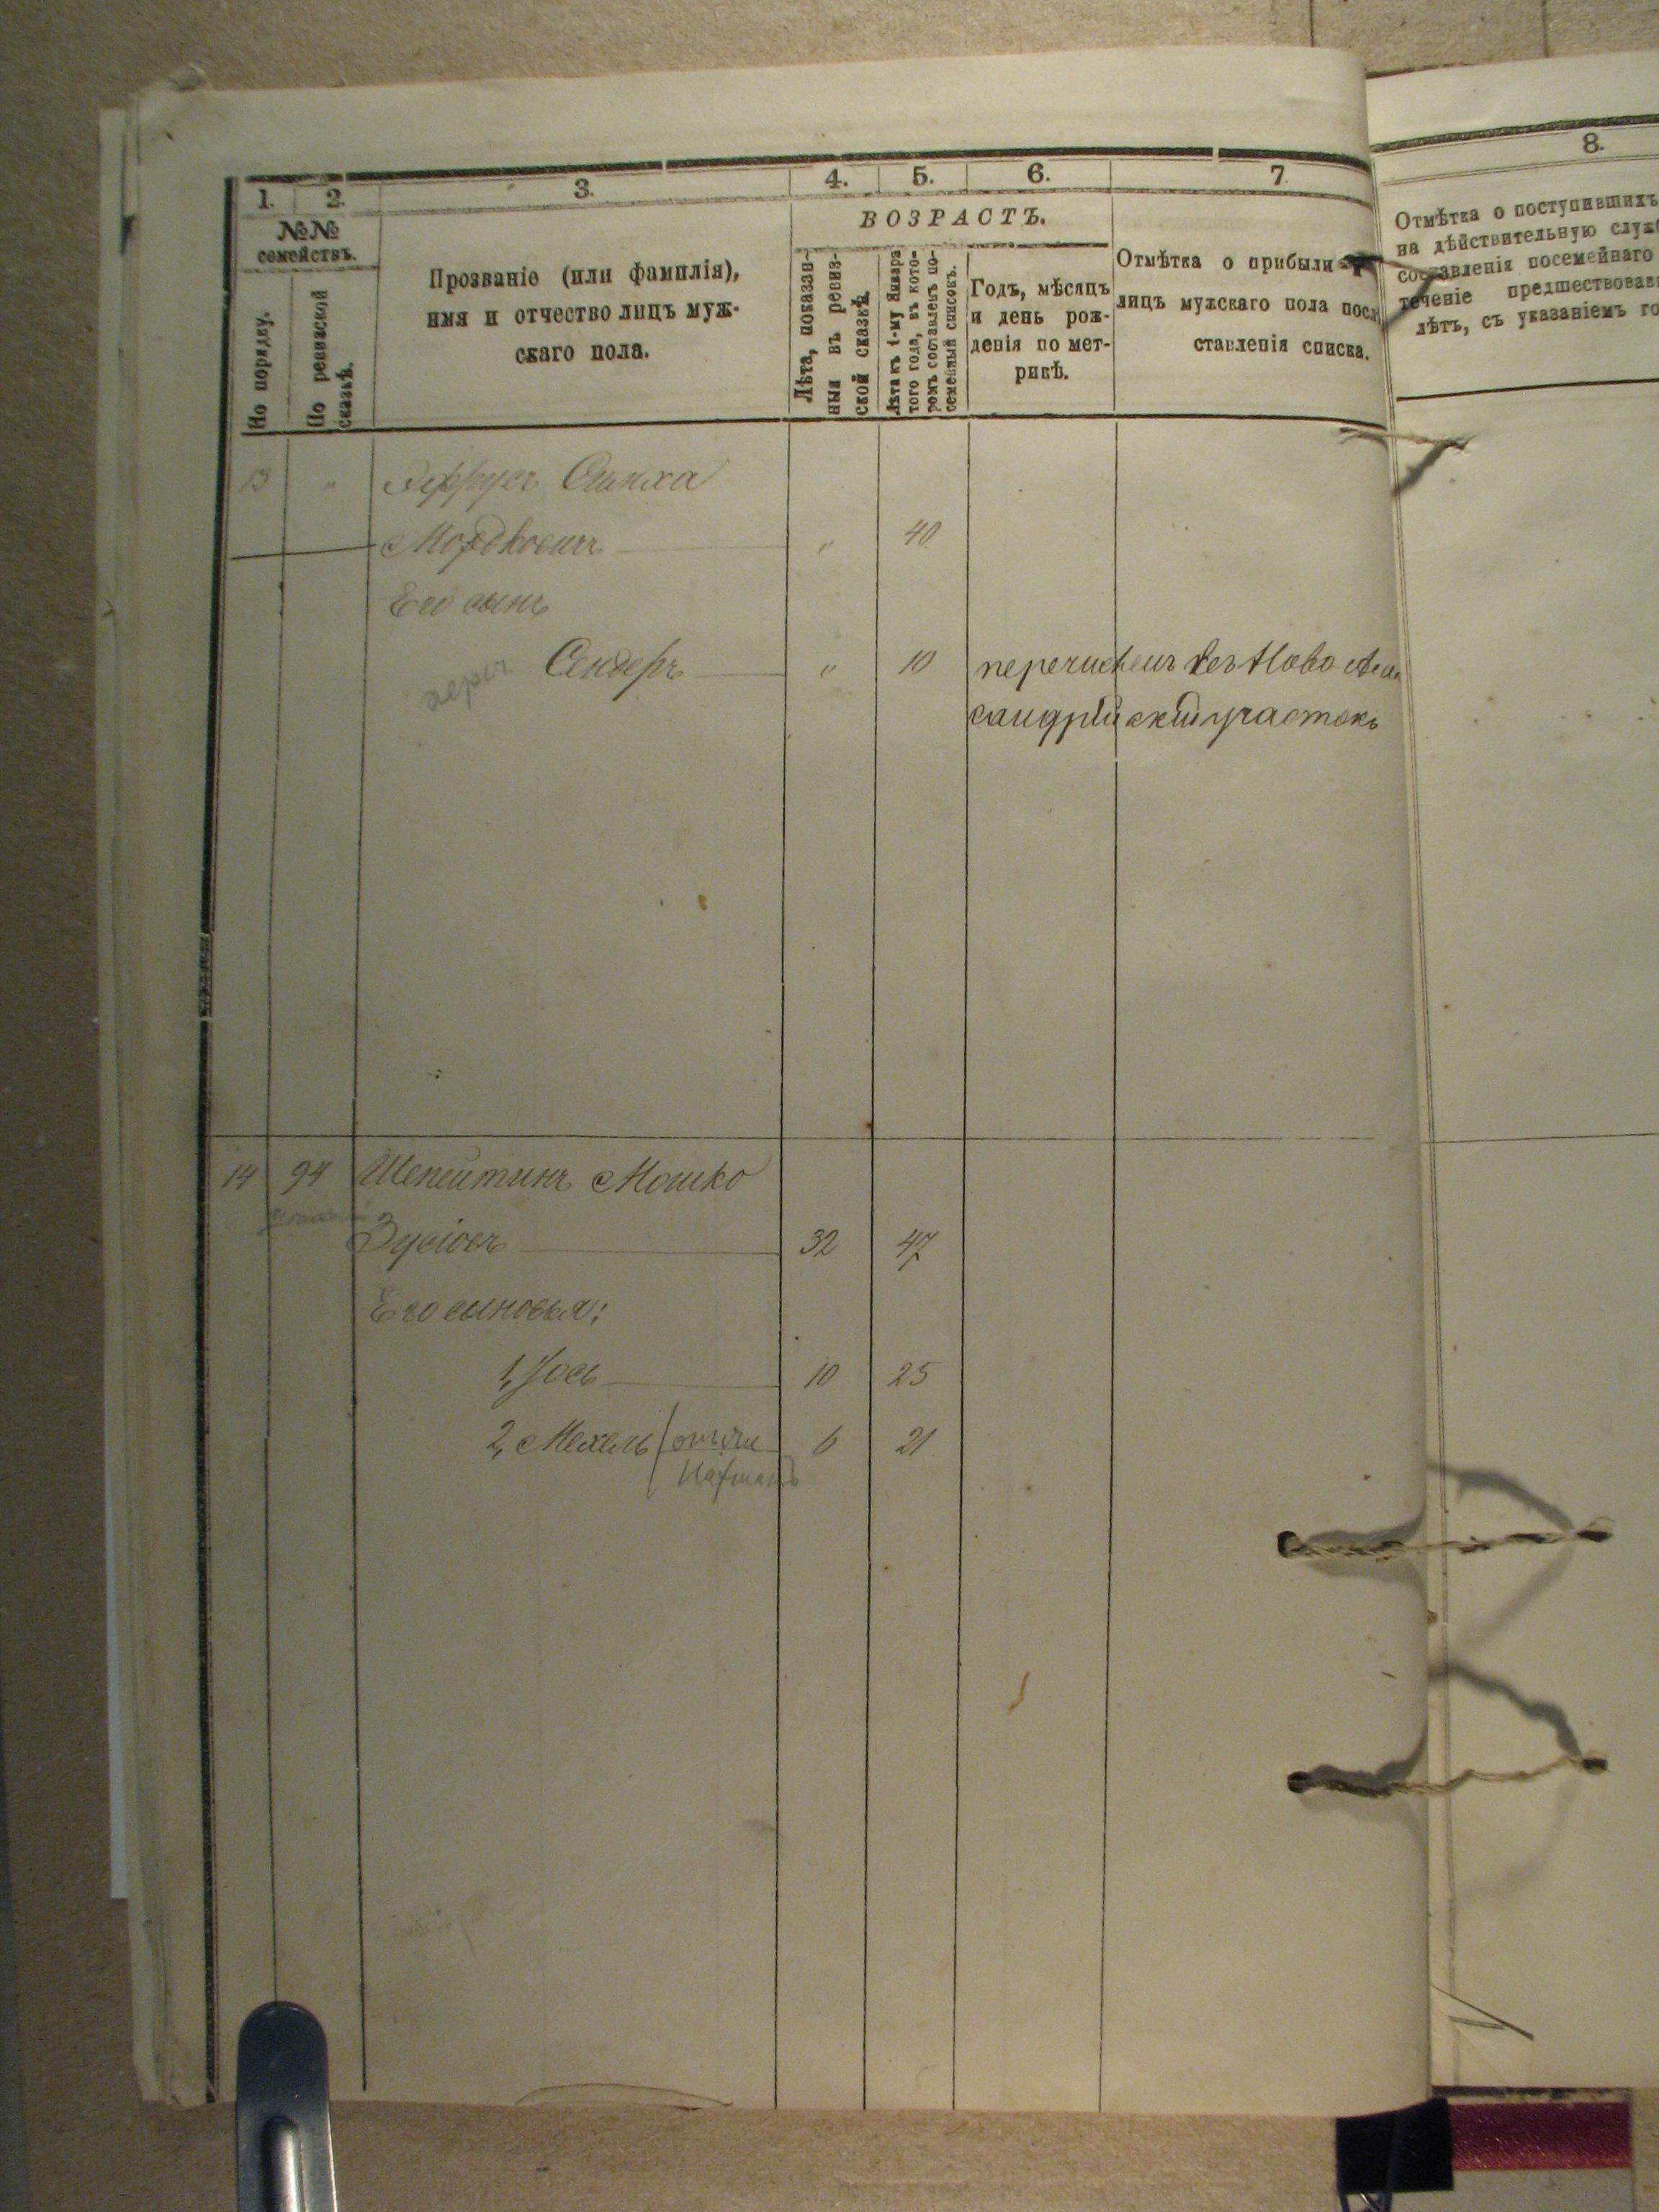 1. 2. 3. 4. 5. 6. 7. 8.
№№
семействъ.
По порядку.
По ревизской
сказкѣ.
Прозваніе (или фамилія),
имя и отчество лицъ муж-
скаго пола.
ВОЗРАСТЪ.
Лѣта, показан-
ныя въ ревиз-
ской сказкѣ.
Лѣта къ 1-му Января
того года, въ кото-
ромъ составленъ по-
семейный списокъ.
Годъ, мѣсяцъ
и день рож-
денія по мет-
рикѣ.
Отмѣтка о прибыли
лицъ мужскаго пола посл
ставленія списка.
Отмѣтка о поступившихъ
на дѣйствительную служ
составленія посемейнаго
теченіе предшествовав
лѣтъ, съ указаніемъ го
13 " Эфрусъ Симха
Мордковичъ " 40
Его сынъ
Сендеръ " 10 перечисленъ въ Ново Алек
сандрійскій участокъ
14 94 Шепетинъ Мошко
Зусіовъ 32 47
Его сыновья:
1, Іось 10 25
2, Мехель 6 21